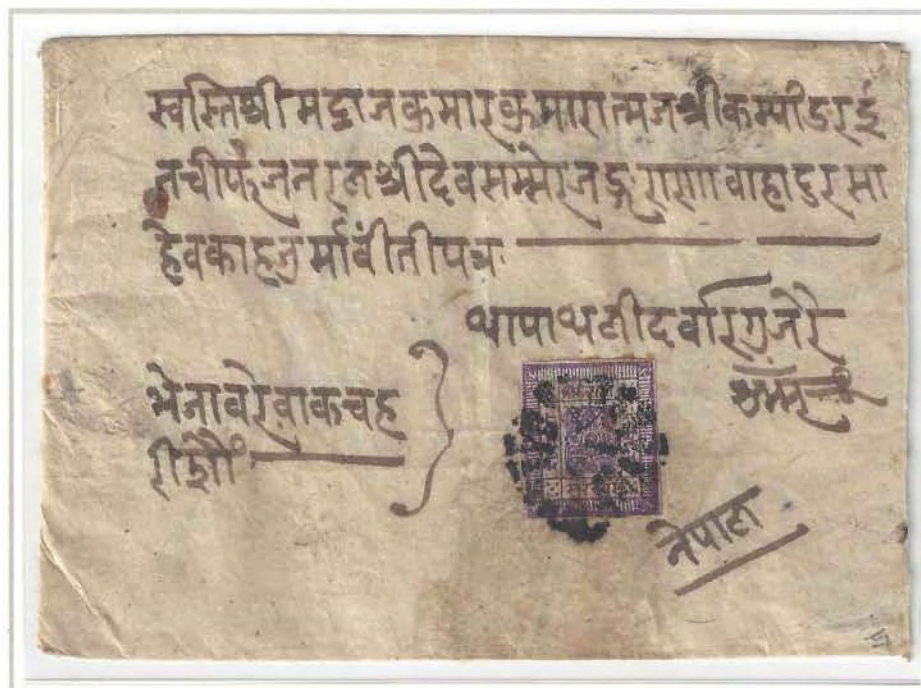 स्वस्तिश्रीमद्राजकुमारकुमारात्मजश्रीकम्यांडरई
नचीफजनरलश्रीदेवसंम्सेरजङ्गराणावाहादुरसा
हेवकाहजुरमावींतीपत्र
थापाथलीदर्वारगुजेरै
भेजावरेवाकचह
रीझौं
नेपाल